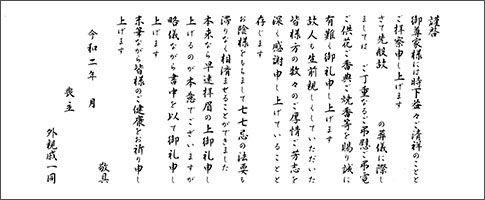 謹啓
御尊家様には時下益々ご清祥のことと
ご拝察申し上げます
さて先般故　　　　の葬儀に際し
ましては　ご丁重なるご弔慰ご弔電
ご供花ご香典ご焼香等を賜り誠に
有難く御礼申し上げます
故人も生前親しくしていただいた
皆様方の数々のご厚情ご芳志を
深く感謝申し上げていることと
存じます
お陰様をもちまして七七忌の法要も
滞りなく相済ませることができました
本来なら早速拝眉の上御礼申し
上げるのが本意でございますが
略儀ながら書中を以て御礼申し
上げます
末筆ながら皆様のご健康をお祈り申し
上げます
敬具
令和二年　月
喪主
外親戚一同